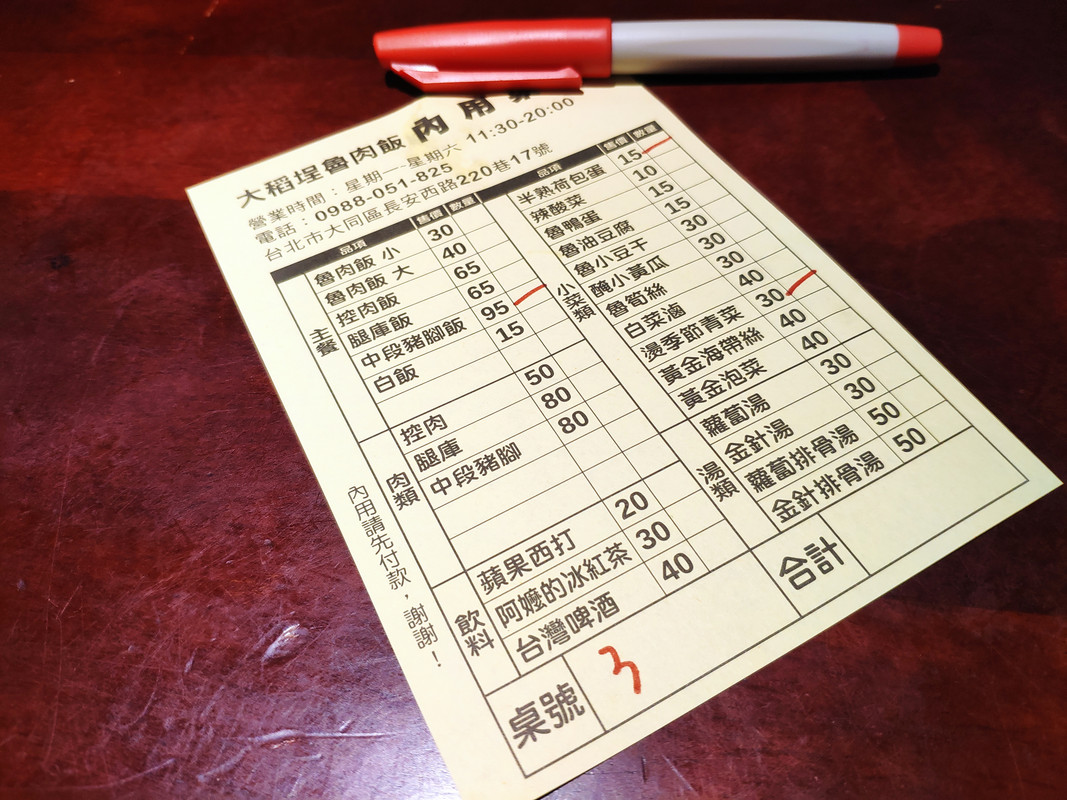 大稻埕魯肉飯 內用
營業時間：星期一~星期六 11:30-20:00
電話：0988-051-825
台北市大同區長安西路220巷17號
品項 售價 數量
主餐
魯肉飯 小 30
魯肉飯 大 40
控肉飯 65
腿庫飯 65
中段豬腳飯 95 一
白飯 15
肉類
控肉 50
腿庫 80
中段豬腳 80
飲料
蘋果西打 20
阿嬤的冰紅茶 30
台灣啤酒 40
品項 售價 數量
小菜類
半熟荷包蛋 15 一
辣酸菜 10
魯鴨蛋 15
魯油豆腐 15
魯小豆干 30
醃小黃瓜 30
魯筍絲 30
白菜滷 40
燙季節青菜 30 一
黃金海帶絲 40
黃金泡菜 40
湯類
蘿蔔湯 30
金針湯 30
蘿蔔排骨湯 50
金針排骨湯 50
桌號 3
合計
內用請先付款，謝謝！